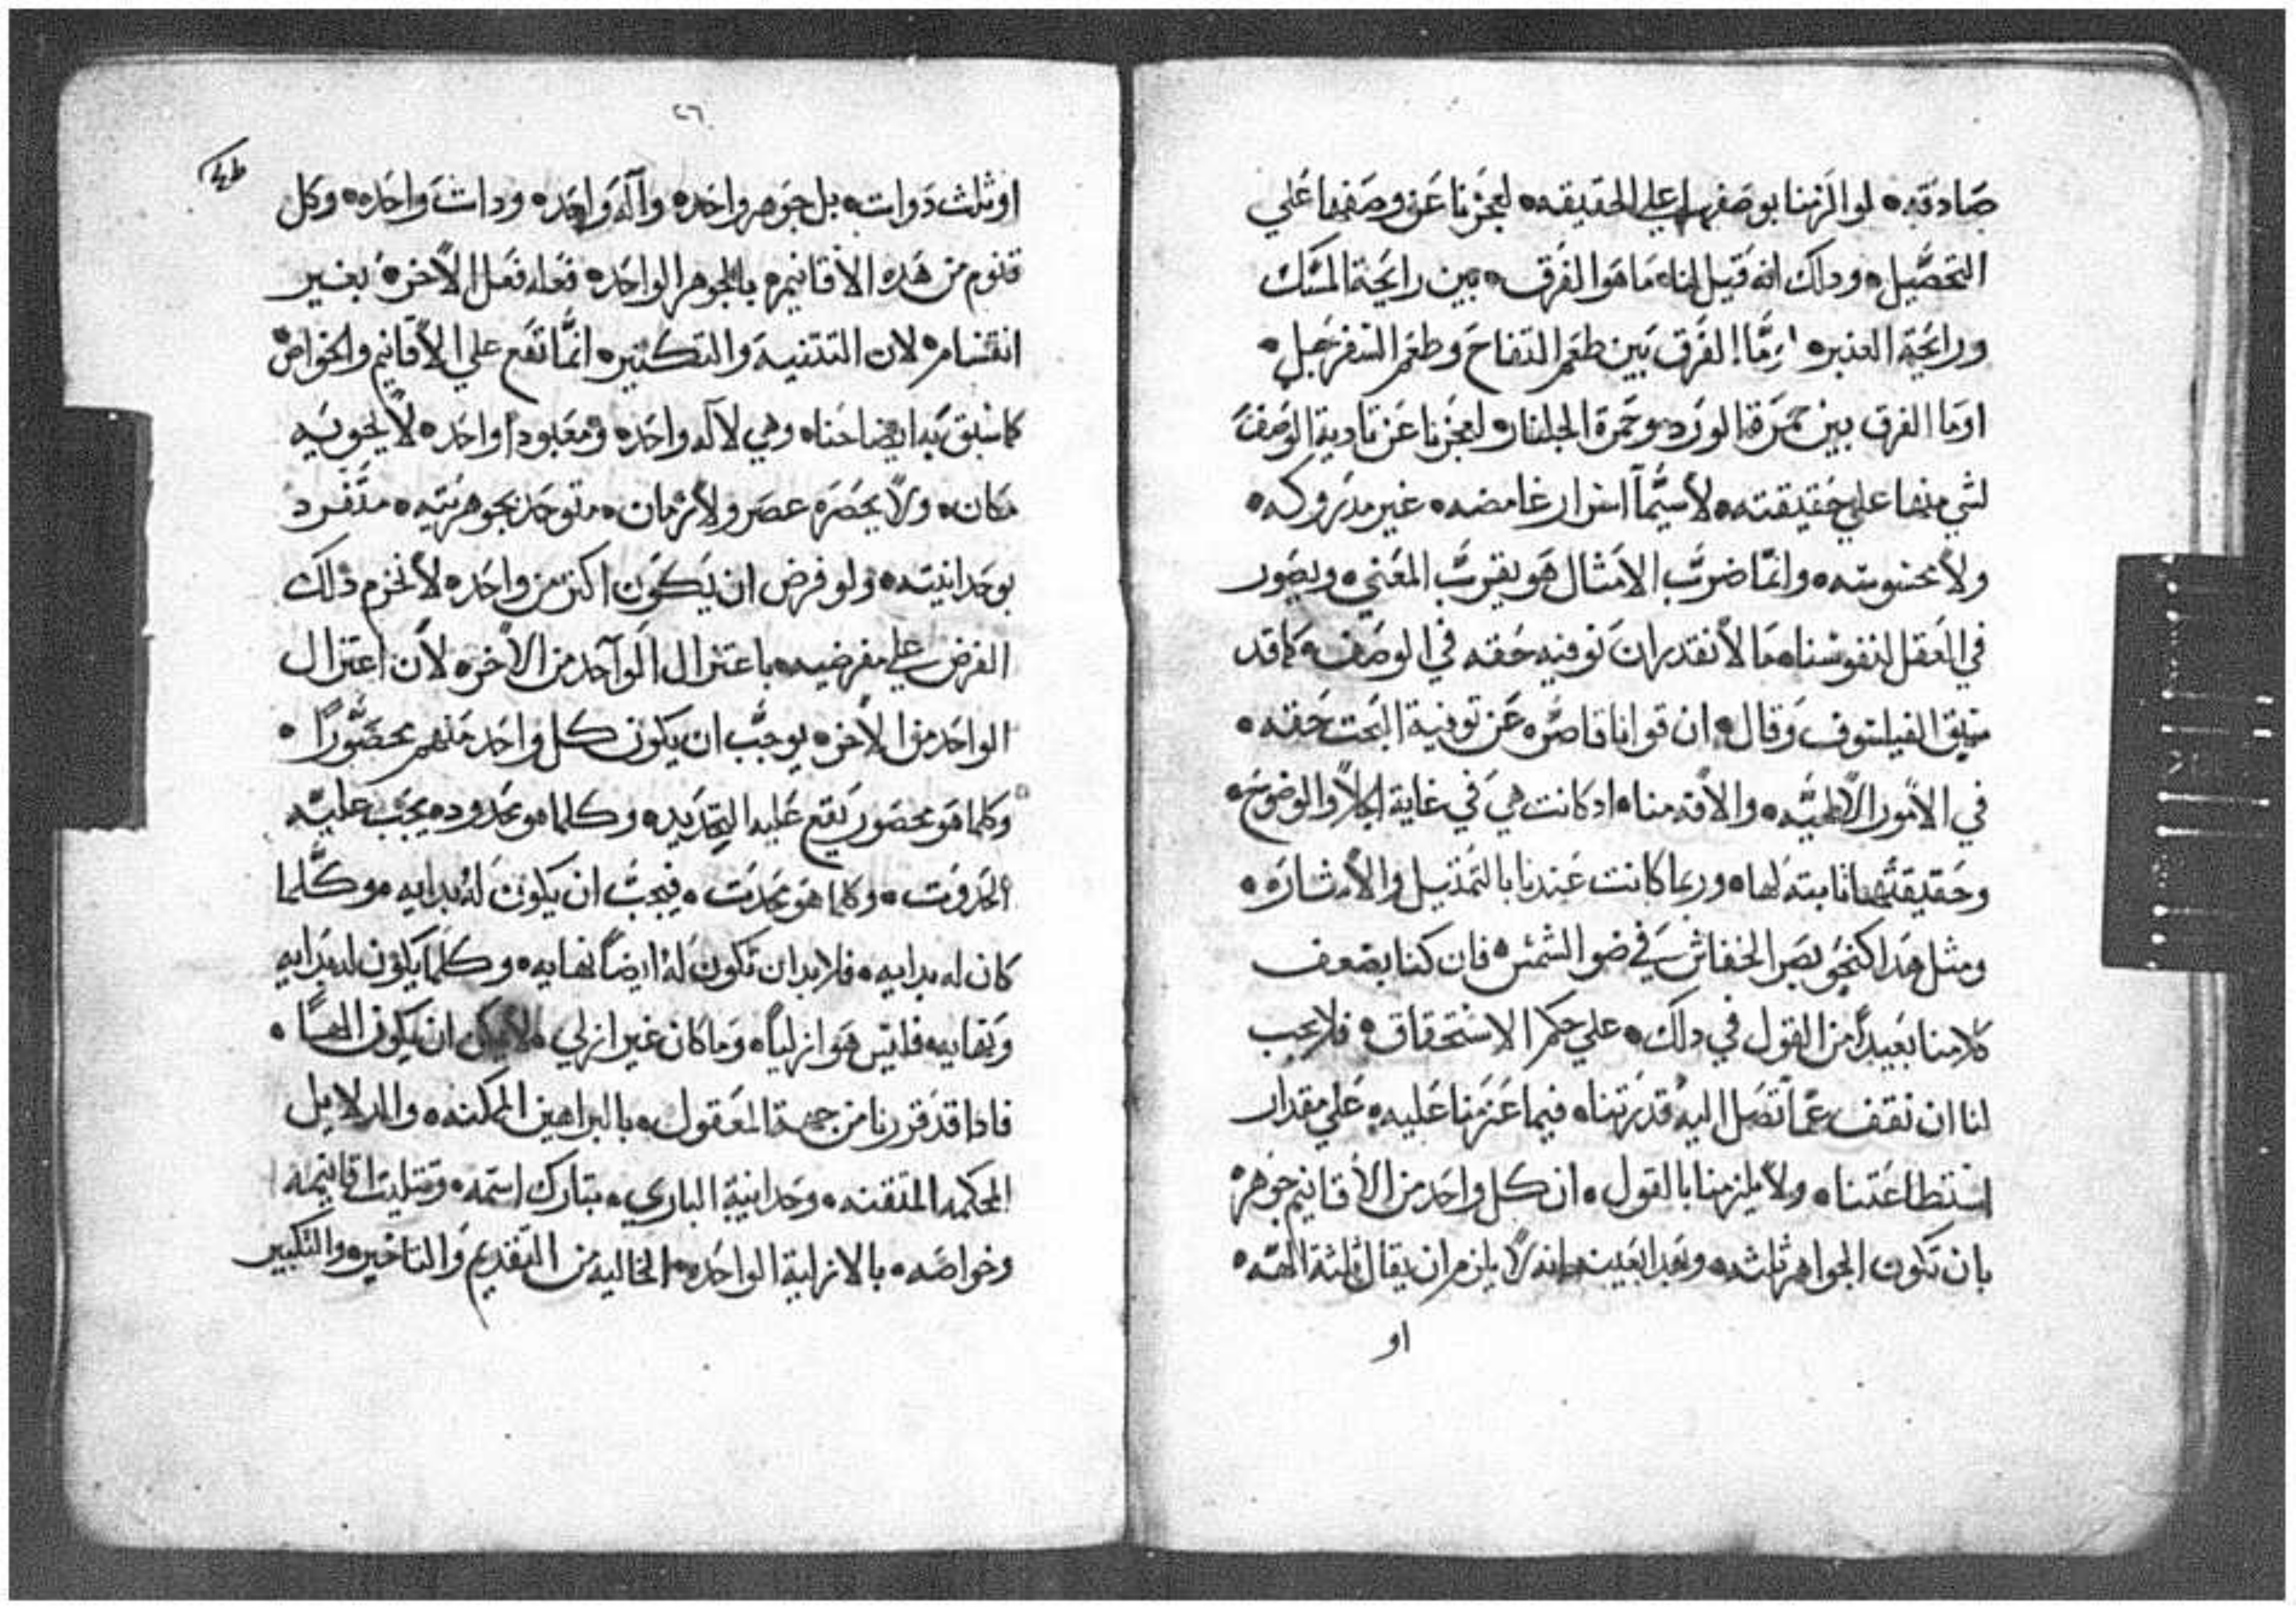 صادقه ٠ لو الزمنا بوصفها علي الحقيقه ٠ لعجزنا عن وصفها علي
التحصيل ٠ ودلك انه قيل لنا ٠ ما هو الفرق ٠ بين رايحة المسك
ورايحة العنبر ٠ الفرق بين طعم التفاح وطعم السفرجل ٠
او ما الفرق بين حمرة الورد وحمرة الجلنار ٠ لعجزنا عن تادية الوصف
لشي منها علي حقيقته ٠ لاسيما اسرار غامضه ٠ غير مدروكه ٠
ولا محسوسه ٠ وانما ضرب الامثال هو يقرب المعني ٠ ويصور
في العقل لنفوسنا ٠ ما لا نقدر ان نوفيه حقه في الوصف ٠ كما قد
الفيلسوف وقال ٠ ان قوانا قاصره عن توفية البحت حقه ٠
في الامور الالاهيه ٠ ادكانت هي في غاية الجلا والوضوح ٠
وحقيقتها تابته لها ٠ وربما كانت عندنا بالتمتيل والاشاره ٠
ومثل هدا كنحو بصر الخفاش في ضو الشمس ٠ فان كنا بضعف
كلامنا بعيدا من القول في دلك ٠ علي حكم الاستحقاق ٠ فلا يجب
لنا ان نقف عما تصل اليه قدرتنا ٠ فيما عزمنا عليه ٠ علي مقدار
استطاعتنا ٠ ولا يلزمنا بالقول ٠ ان كل واحد من الاقانيم جوهر ٠
بان تكون الجواهر ثلثه ٠ وبهدا بعينه انه لا يلزم ان يقال ثلثة الهه ٠
او
٢٦
او ثلث دوات ٠ بل جوهر واحد ٠ واله واحد ٠ ودات واحده ٠ وكل
قنوم من هده الاقانيم ٠ بالجوهر الواحد ٠ فعله فعل الاخر ٠ بغير
انقسام ٠ لان التتنية والتكتير ٠ انما تقع علي الاقانيم والخواص
كما سبق به ايضاحنا ٠ وهي لاله واحد ٠ ومعبودا واحد ٠ لا يحويه
مكان ٠ ولا يحصره عصر ولا زمان ٠ متوحد بجوهريته ٠ متفرد
بوحدانيته ٠ ولو فرض ان يكون اكتر من واحد ٠ لانخرم دلك
الفرض علي مفرضيه ٠ باعتزال الواحد من الاخر ٠ لان اعتزال
الواحد من الاخر ٠ يوجب ان يكون كل واحد منهم محصورا ٠
وكلما هو محصور يقع عليه التحديد ٠ وكلما هو محدود ٠ يجب عليه
الحدوت ٠ وكلما هو محدت ٠ فيجب ان يكون له بدايه ٠ وكلما
كان له بدايه ٠ فلابد ان تكون له ايضا نهايه ٠ وكلما يكون له بدايه
ونهايه فليس هو ازليا ٠ وما كان غير ازلي ٠ لا يمكن ان يكون الهًا ٠
فادا قد قررنا من جهة المعقول ٠ بالبراهين الممكنه ٠ والدلايل
المحكمه المتقنه ٠ وحدانية الباري ٠ تبارك اسمه ٠ وتتليت اقانيمه
وخواصه ٠ بالازلية الواحده ٠ الخاليه من التقديم والتاخير ٠ والتكبير